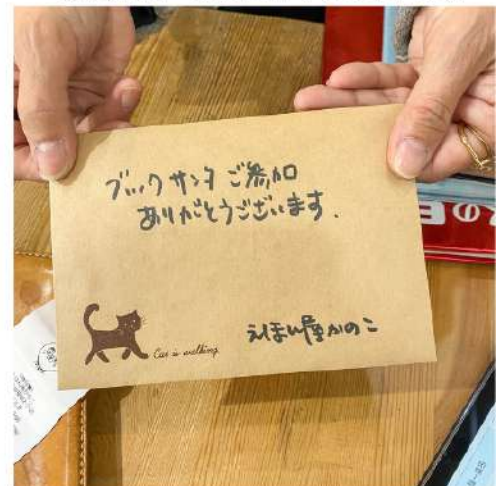 ブックサンタご参加
ありがとうございます.
Cat is walking
えほん屋かのこ